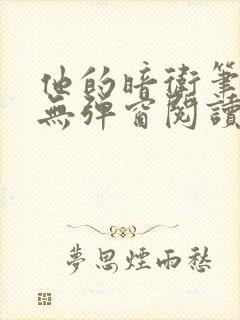 他的暗衛筆
無彈窗閱讀
夢思煙雨愁